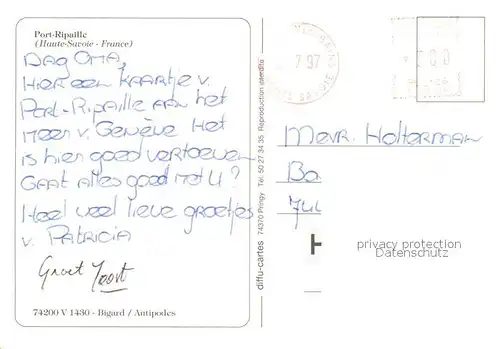 Port-Ripaille
(Haute-Savoie - France)
DAG OMA,
HIER EEN KAARTJE V.
PORT-RIPAILLE AAN HET
MEER V. GENÈVE HET
IS HIER GOED VERTOEVEN
GAAT ALLES GOED MET U?
HEEL VEEL LIEVE GROETJES
V. PATRICIA
Groet Joost
74200 V 1430 - Bigard / Antipodes
diffu-cartes 74370 Pringy Tel. 50 27 34 35 Reproduction interdite
7 97
HAUTE SAVOIE
Mevr. Holterman
Bo
Jul
privacy protection
Datenschutz